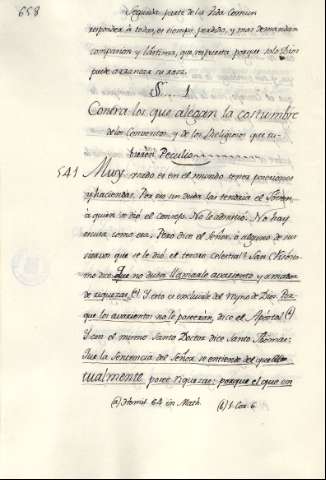 658
Segunda parte de la Vida Comun
responder a todos, es tiempo perdido, y mas demandan
compasion y lastima, que respuesta porque solo Dios
puede arrancar su raiz.
§. 1
Contra los que alegan la costumbre
de los Conventos y de los Religiosos que tu-
bieron Peculio
541 Muy usado es en el mundo tener posesiones
y haciendas. Por eso sin duda las tendria el Joven,
à quien se diò el consejo. No le admitiò. No hay
escusa como esa. Pero dice el Señor, ò alguno de sus
siervos que se le diò, el tesoro celestial? San Chrisos-
mo dice que no duda llamarle avariento y amador
de riquezas (a) Y esto es excluirle del reyno de Dios. Por-
que los avarientos no le poseeràn, dice el Apostol (b)
Y con el mismo Santo Doctor dice Santo Thomas:
Que la Sentencia del Señor se entiende del que
tualmente posee riquezas: porque el que en
(a) Homil. 64 in Math. (b) 1. Cor. 6.